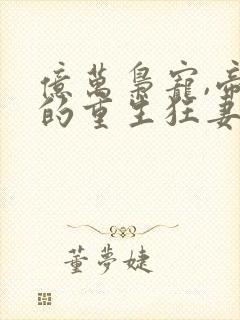 億萬梟寵,帝
的重生狂妻
董夢婕